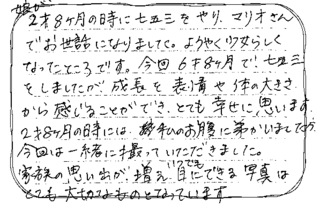 娘が
2才8ヶ月の時に七五三をやり、マリオさん
でお世話になりました。ようやく少女らしく
なったところです。今回6才8ヶ月で、七五三
をしましたが、成長を表情や体の大きさ
から感じることができ、とても幸せに思います。
2才8ヶ月の時には、のお腹に弟がいましたが
今回は一緒に撮っていただきました。
家族の思い出が増え、いつでも目にできる写真は
とても大切なものとなっています